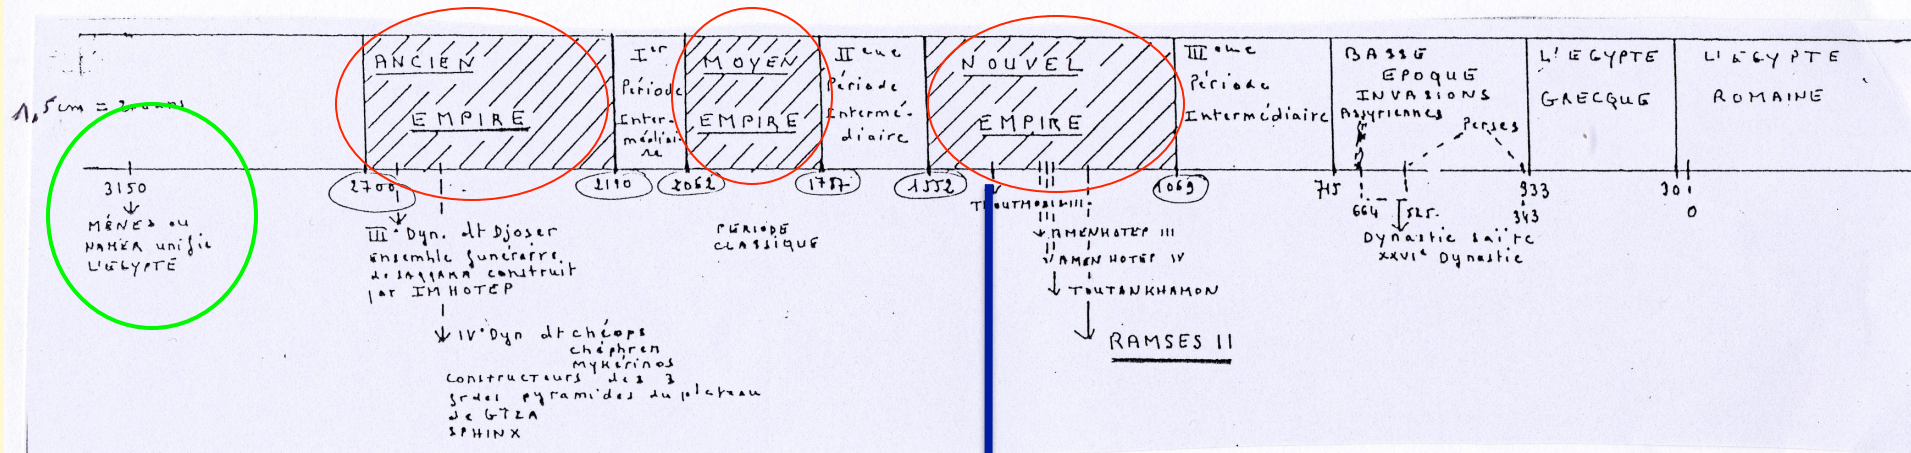 ANCIEN
EMPIRE
Ier
Période
Inter-
médiai-
re
MOYEN
EMPIRE
IIeme
Période
Intermé-
diaire
NOUVEL
EMPIRE
IIIeme
Période
Intermédiaire
BASSE
EPOQUE
INVASIONS
Assyriennes
Perses
L'EGYPTE
GRECQUE
L'EGYPTE
ROMAINE
1,5cm =
3150
MÉNES ou
NAMER unifie
L'EGYPTE
2700
2190
2062
1787
1552
1069
715
664
525
333
343
30
0
III° Dyn. dt Djoser
Ensemble funéraire
de SAQQARA construit
par IMHOTEP
IV° Dyn dt chéops
chéphren
Mykérinos
constructeurs des 3
grdes pyramides du plateau
de GIZA
SPHINX
PERIODE
CLASSIQUE
THOUTMOSIS III
AMENHOTEP III
AMENHOTEP IV
TOUTANKHAMON
RAMSES II
Dynastie saïte
XXVIe Dynastie